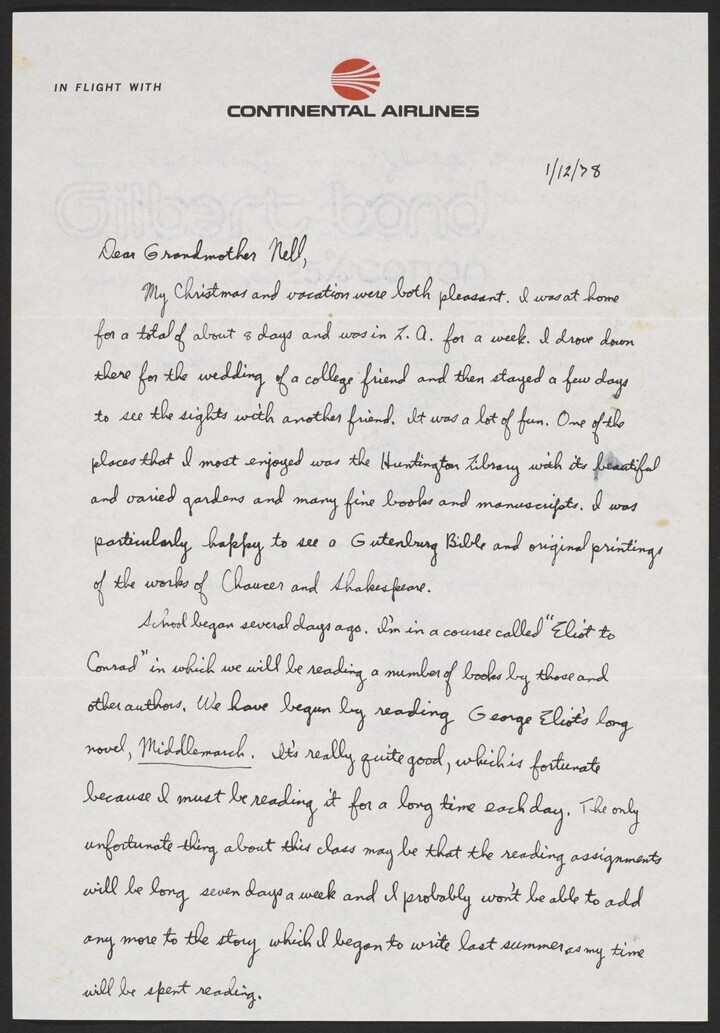 IN FLIGHT WITH
CONTINENTAL AIRLINES
1/12/78
Gilbert bond
25% COTTON
Dear Grandmother Nell,
My Christmas and vacation were both pleasant. I was at home
for a total of about 8 days and was in L.A. for a week. I drove down
there for the wedding of a college friend and then stayed a few days
to see the sights with another friend. It was a lot of fun. One of the
places that I most enjoyed was the Huntington Library with its beautiful
and varied gardens and many fine books and manuscripts. I was
particularly happy to see a Gutenburg Bible and original printings
of the works of Chaucer and Shakespeare.
School began several days ago. I'm in a course called "Eliot to
Conrad" in which we will be reading a number of books by those and
other authors. We have begun by reading George Eliot's long
novel, Middlemarch. It's really quite good, which is fortunate
because I must be reading it for a long time each day. The only
unfortunate thing about this class may be that the reading assignments
will be long seven days a week and I probably won't be able to add
any more to the story which I began to write last summer as my time
will be spent reading.